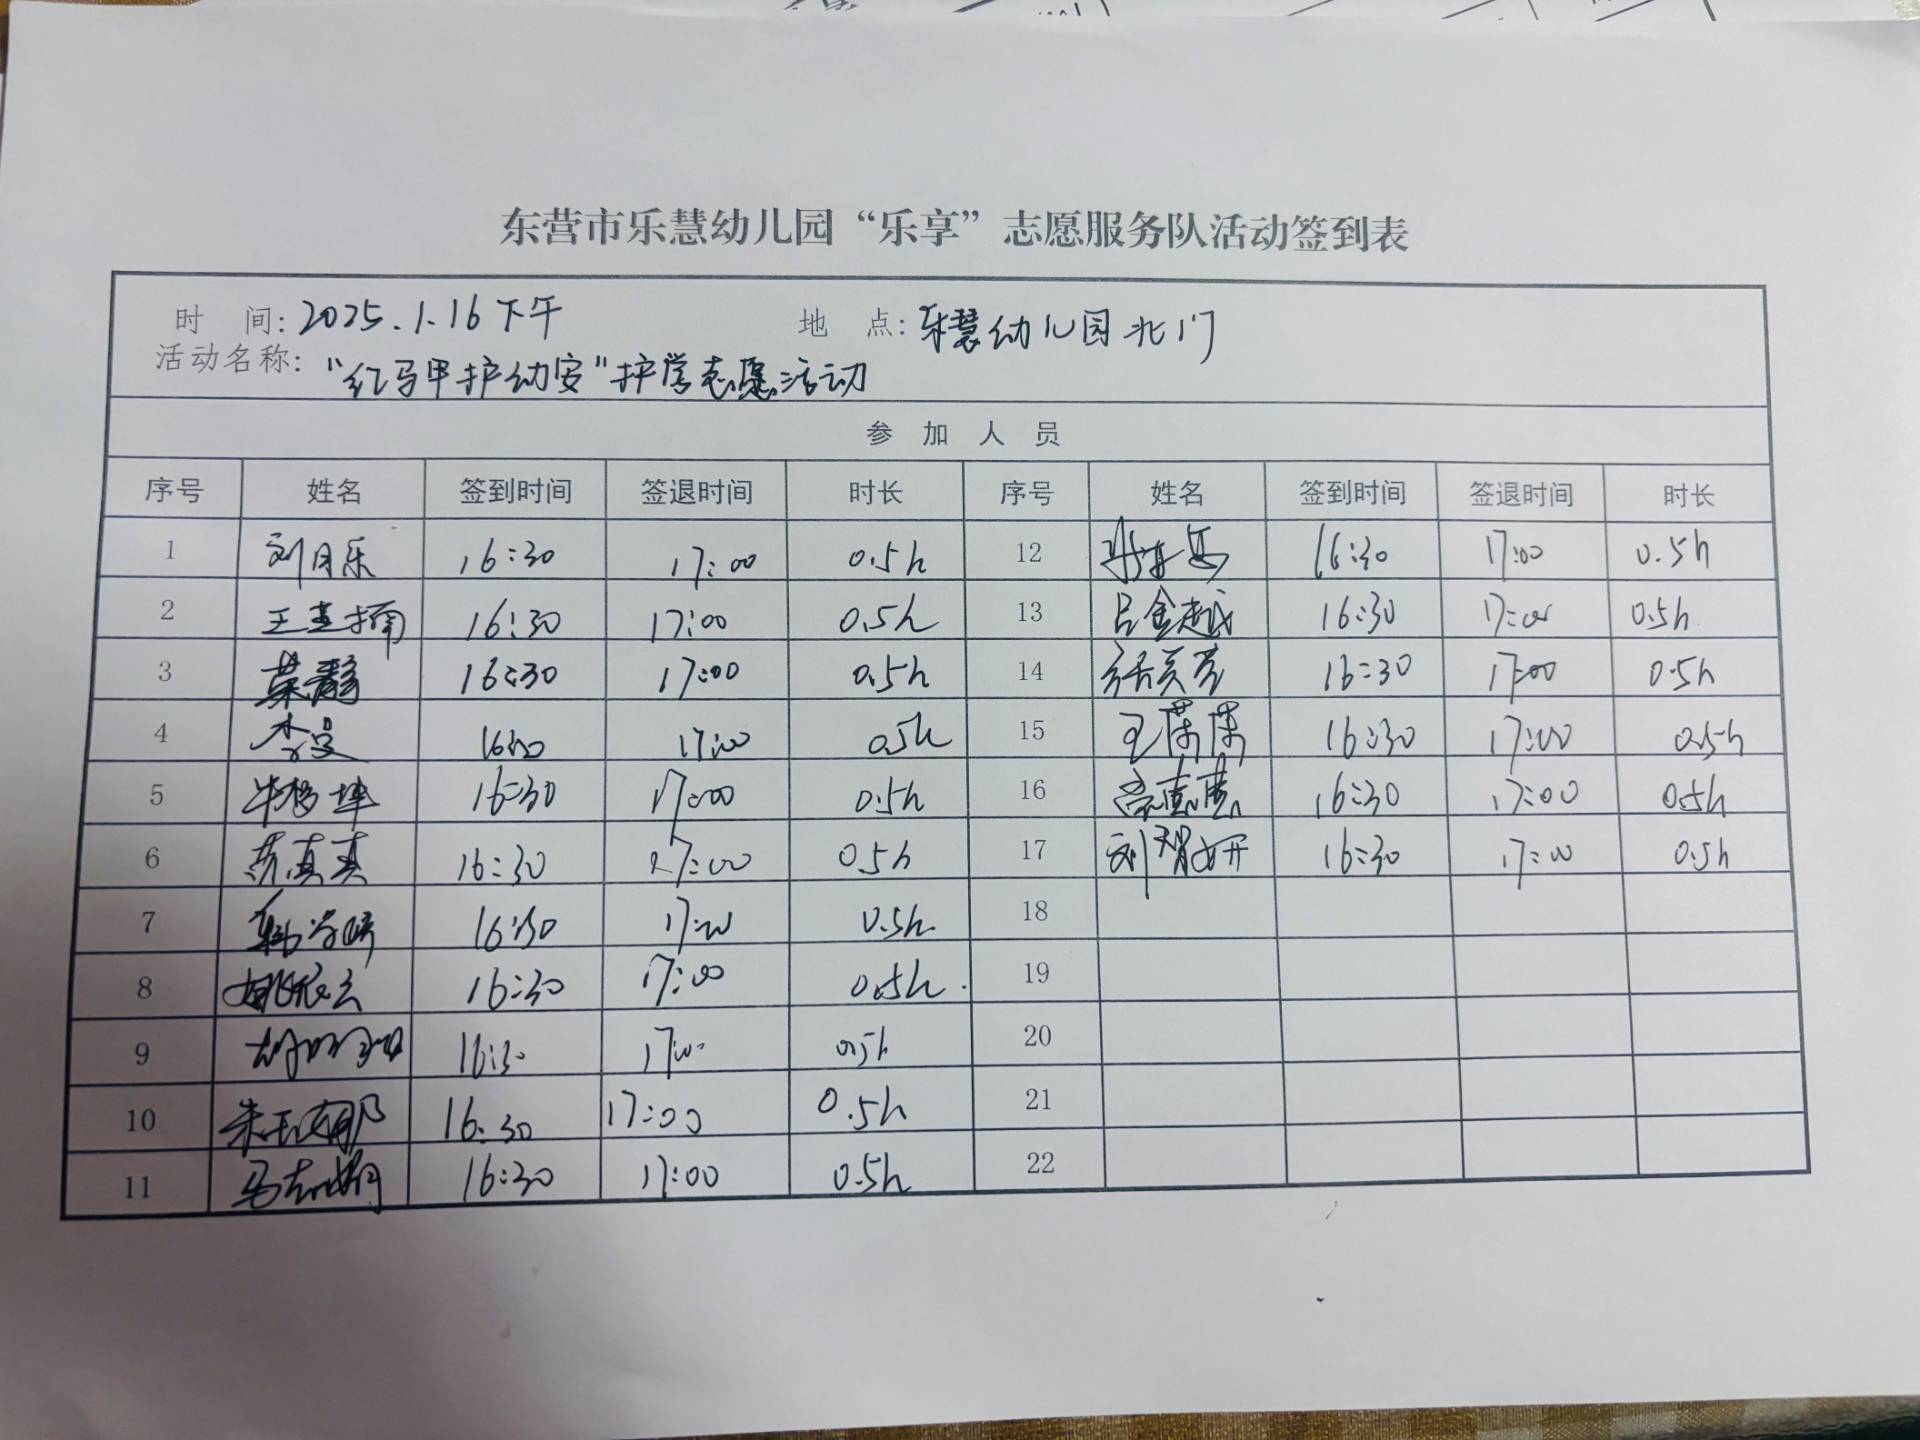 东营市乐慧幼儿园“乐享”志愿服务队活动签到表
时 间: 2025.1.16下午 地 点: 乐慧幼儿园北门
活动名称: “红马甲护幼安”护学志愿活动
参 加 人 员
序号 姓名 签到时间 签退时间 时长 序号 姓名 签到时间 签退时间 时长
1 刘月乐 16:30 17:00 0.5h 12 16:30 17:00 0.5h
2 王 16:30 17:00 0.5h 13 吕金越 16:30 17:00 0.5h
3 16:30 17:00 0.5h 14 16:30 17:00 0.5h
4 李旻 16:30 17:00 0.5h 15 王 16:30 17:00 0.5h
5 16:30 17:00 0.5h 16 高惠惠 16:30 17:00 0.5h
6 真真 16:30 17:00 0.5h 17 刘珺妍 16:30 17:00 0.5h
7 16:30 17:00 0.5h. 18
8 姚依云 16:30 17:00 0.5h. 19
9 16:30 17:00 0.5h 20
10 朱玉娜 16:30 17:00 0.5h 21
11 马志娟 16:30 17:00 0.5h 22